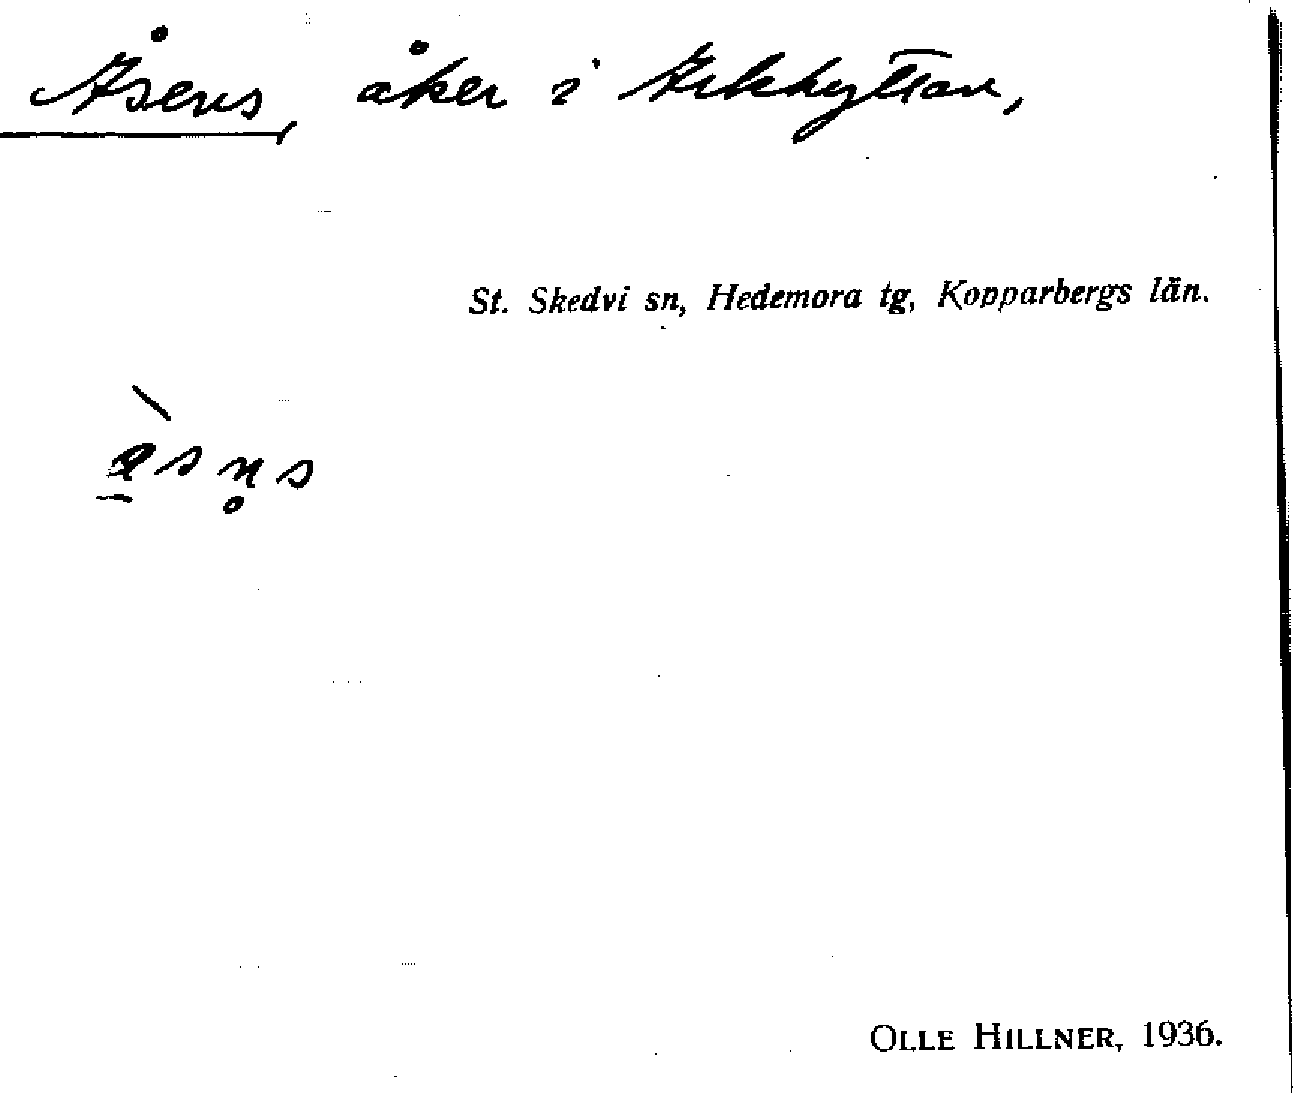 Åsens, åker i Arkhyttan,
St. Skedvi sn, Hedemora tg, Kopparbergs län.
OLLE HILLNER, 1936.